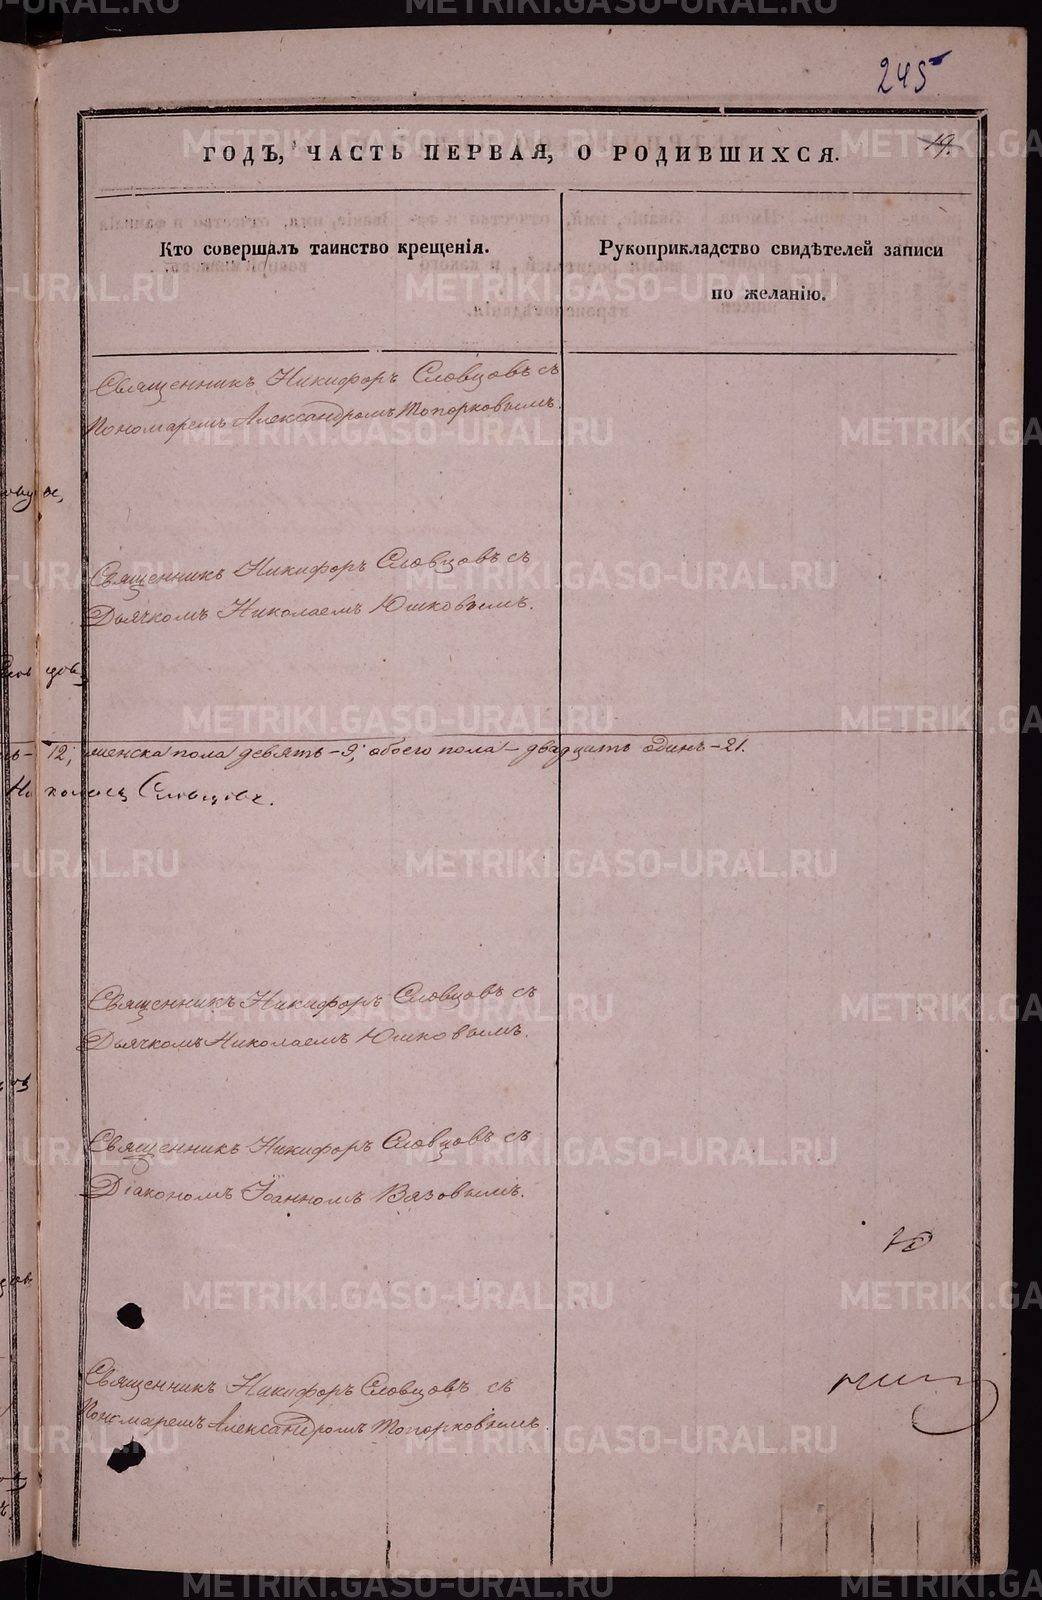 245
19.
ГОДЪ, ЧАСТЬ ПЕРВАЯ, О РОДИВШИХСЯ.
Кто совершалъ таинство крещенія.
Рукоприкладство свидѣтелей записи
по желанію.
Священникъ Никифоръ Словцовъ съ
Пономаремъ Александромъ Топорковымъ.
Священникъ Никифоръ Словцовъ съ
Дьячкомъ Николаемъ Юшковымъ.
12; женска пола девять - 9; обоего пола - двадцать одинъ - 21.
Словцовъ.
Священникъ Никифоръ Словцовъ съ
Дьячкомъ Николаемъ Юшковымъ.
Священникъ Никифоръ Словцовъ съ
Діакономъ Іоанномъ Вязовымъ.
Священникъ Никифоръ Словцовъ съ
Пономаремъ Александромъ Топорковымъ.
METRIKI.GASO-URAL.RU